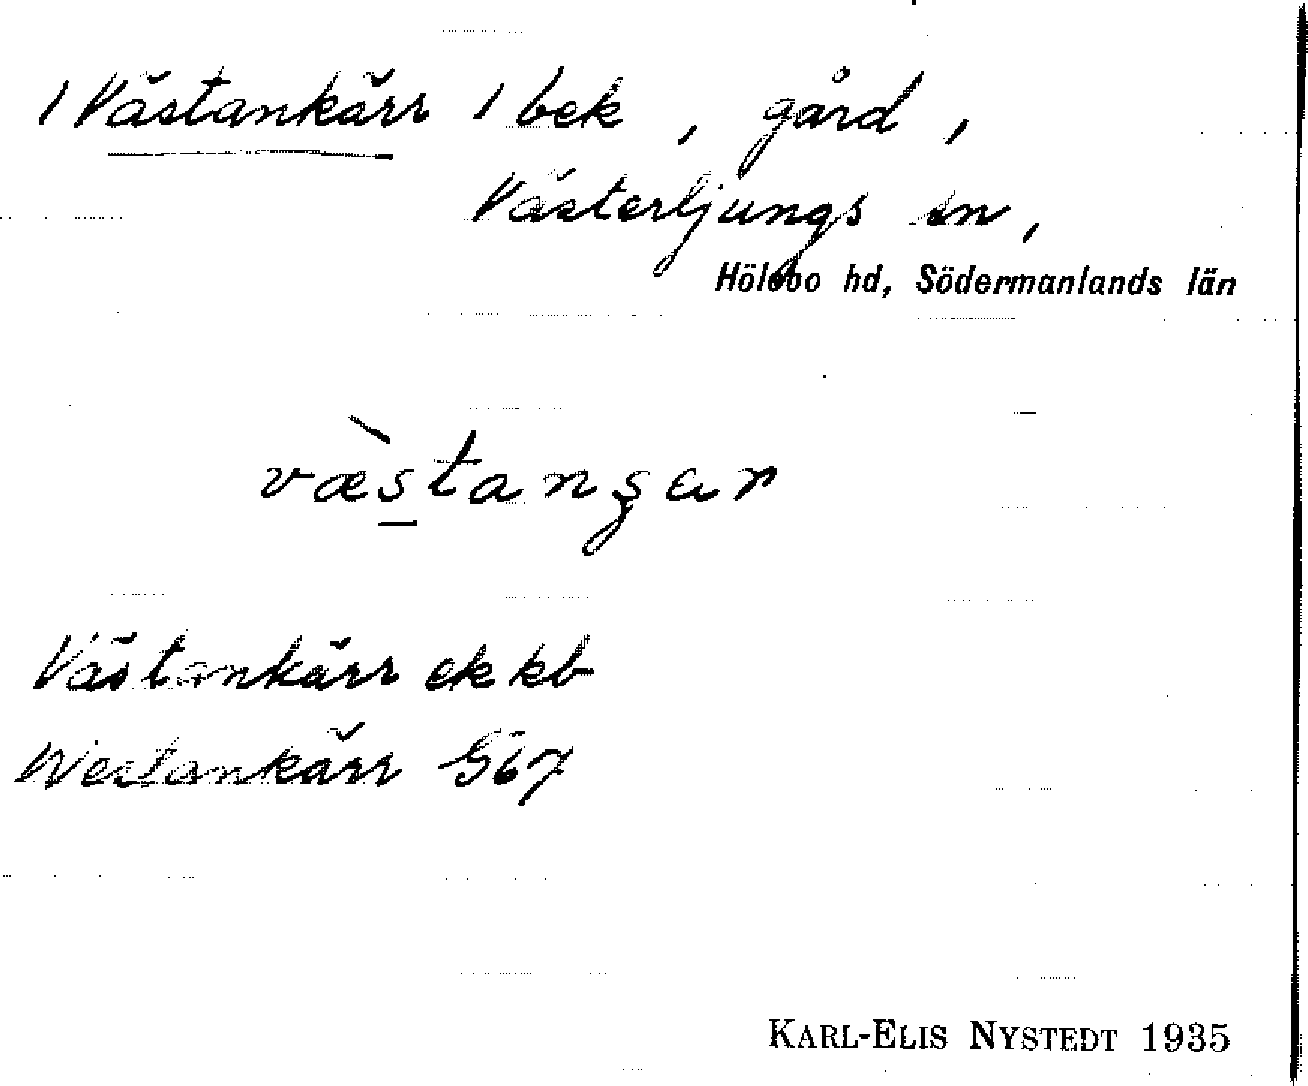 / Västankärr / bek, gård,
Västerljungs sn,
Hölebo hd, Södermanlands län
væ̀stanȿær
Västankärr ek kb
Westankärr G67
KARL-ELIS NYSTEDT 1935